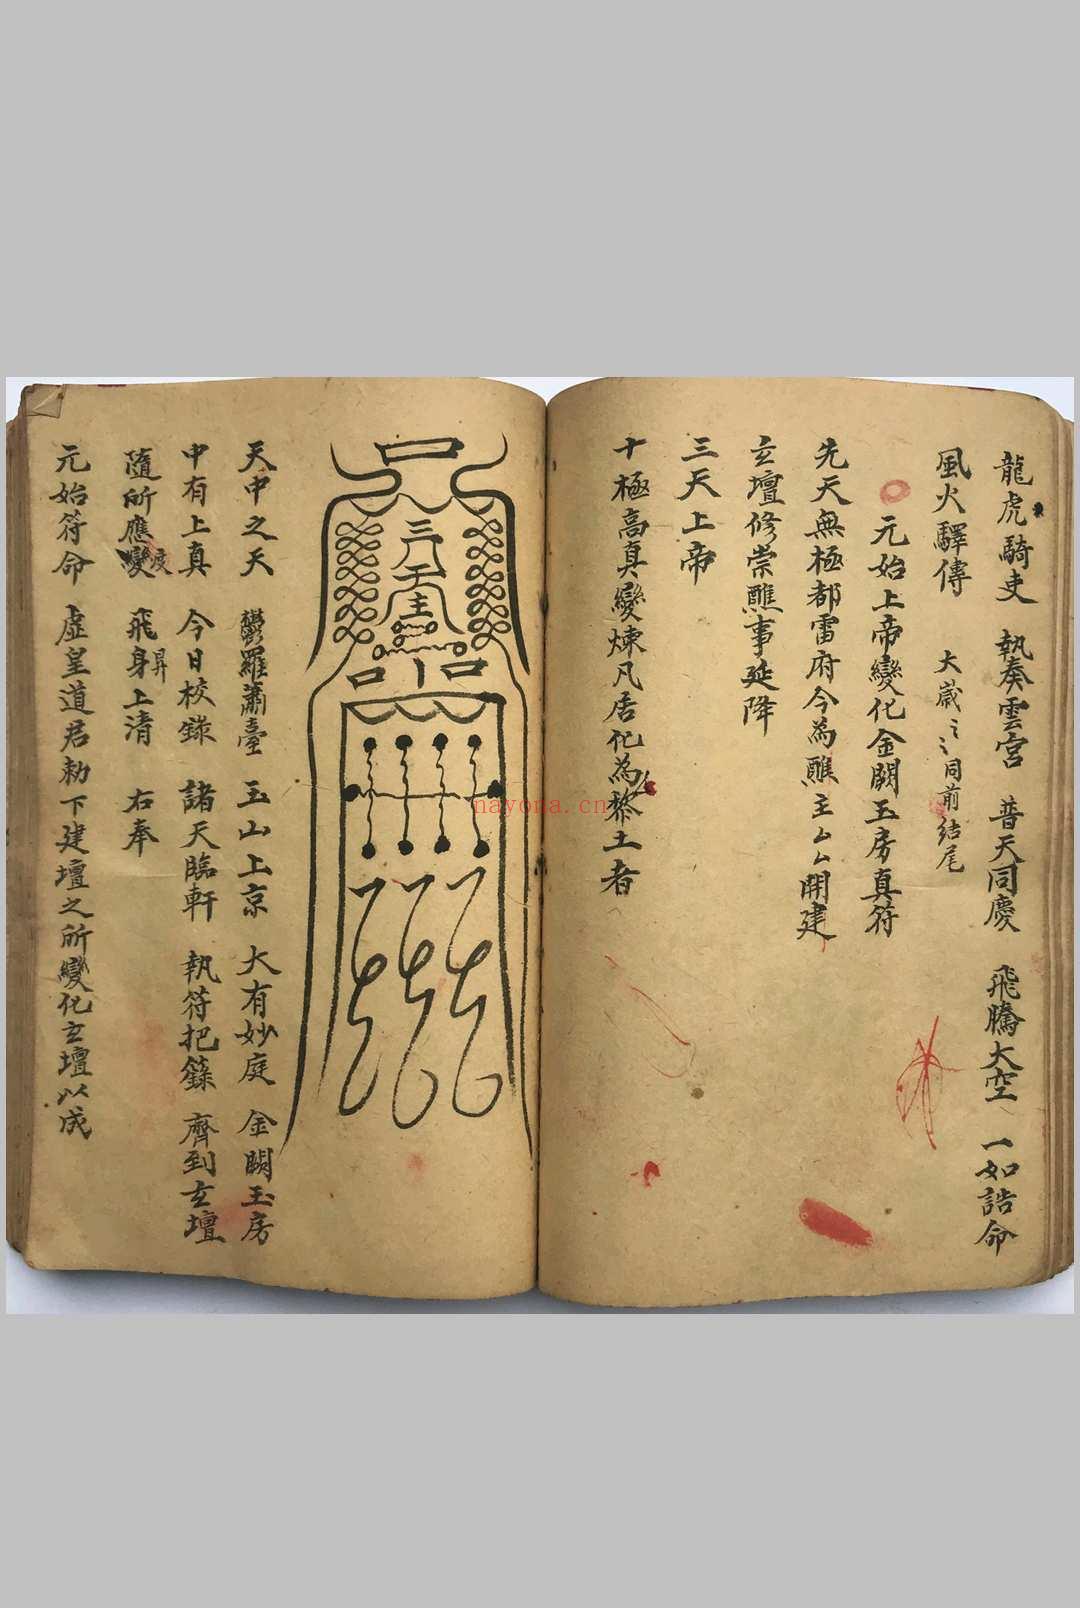 龍虎騎吏 執奏雲宮 普天同慶 飛騰太空 一如誥命
風火驛傳 大歲〻〻同前結尾
元始上帝變化金闕玉房真符
先天無極都雷府今為醮主厶厶開建
玄壇修崇醮事延降
三天上帝
十極高真變煉凡居化為黎土者
天中之天 鬱羅蕭臺 玉山上京 大有妙庭 金闕玉房
中有上真 今日校錄 諸天臨軒 執符把籙 齊到玄壇
隨所應變度 飛身昇上清 右奉
元始符命 虛皇道君勅下建壇之所變化玄壇以成
nayona.cn